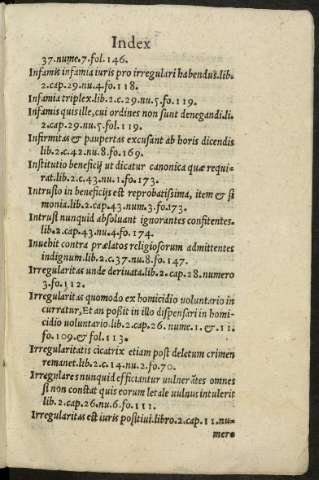 Index
37.nume.7.fol.146.
Infamis infamia iuris pro irregulari habendus.lib.
2.cap.29.nu.4.fo.118.
Infamia triplex.lib.2.c.29.nu.5.fo.119.
Infamis quis ille, cui ordines non sunt denegandi.li.
2.cap.29.nu.5.fol.119.
Infirmitas & paupertas excusãt ab horis dicendis
lib.2.c.42.nu.8.fo.169.
Institutio beneficij ut dicatur canonica quæ requi-
rat.lib.2.c.43.nu.1.fo.173.
Intrusio in beneficijs est reprobatissima, item & si
monia.lib.2.cap.43.num.3.fo.173.
Intrusi nunquid absoluant ignorantes confitentes.
lib.2.cap.43.nu.4.fo.174.
Inuehit contra prælatos religiosorum admittentes
indignum.lib.2.c.37.nu.8.fo.147.
Irregularitas unde deriuata.lib.2.cap.28.numero
3.fo.112.
Irregularitas quomodo ex homicidio uoluntario in
curratur, Et an poßit in illo dispensari in homi-
cidio uoluntario.lib.2.cap.26.nume.1.&.11.
fo.109.& fol.113.
Irregularitatis cicatrix etiam post deletum crimen
remanet.lib.2.c.14.nu.2.fo.70.
Irregulares nunquid efficiantur uulnerãtes omnes
si non constat quis eorum letale uulnus intulerit
lib.2.cap.26.nu.6.fo.111.
Irregularitas est iuris positiui.libro.2.cap.11.nu-
mero